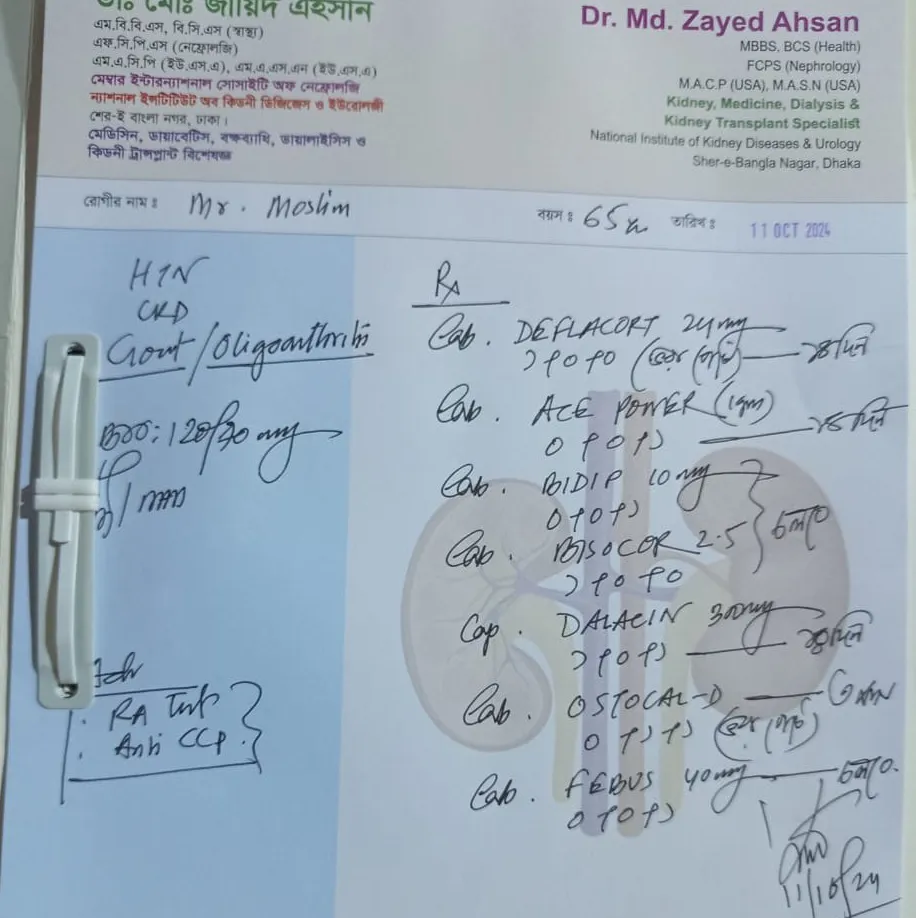 ডাঃ মোঃ জায়িদ এহসান
এম.বি.বি.এস, বি.সি.এস (স্বাস্থ্য)
এফ.সি.পি.এস (নেফ্রোলজি)
এম.এ.সি.পি (ইউ.এস.এ), এম.এ.এস.এন (ইউ.এস.এ)
মেম্বার ইন্টারন্যাশনাল সোসাইটি অফ নেফ্রোলজি
ন্যাশনাল ইনস্টিটিউট অব কিডনী ডিজিজেস ও ইউরোলজী
শের-ই বাংলা নগর, ঢাকা।
মেডিসিন, ডায়াবেটিস, বক্ষব্যাধি, ডায়ালাইসিস ও
কিডনী ট্রান্সপ্লান্ট বিশেষজ্ঞ
Dr. Md. Zayed Ahsan
MBBS. BCS (Health)
FCPS (Nephrology)
M.A.C.P (USA), M.A.S.N (USA)
Kidney, Medicine, Dialysis &
Kidney Transplant Specialist
National Institute of Kidney Diseases & Urology
Sher-e-Bangla Nagar, Dhaka
রোগীর নাম ঃ Mr. Moslim বয়স ঃ 65 তারিখ ঃ 11 OCT 2024
HTN
CKD
Gout / Oligoarthritis
120/70 mmHg
RA Test
Anti CCP
Rx
Tab. DEFLACORT 24 mg
১+০+০ ১৪ দিন
Tab. ACE POWER (1gm)
০+০+১
Tab. BIDIP 10 mg
০+০+১
Tab. BISOCOR 2.5
১+০+০
চলবে
Cap. DALACIN 300 mg
১+০+১ ১৪ দিন
Tab. OSTOCAL-D
০+১+১
Tab. FEBUS 40 mg চলবে
০+০+১
11/10/24